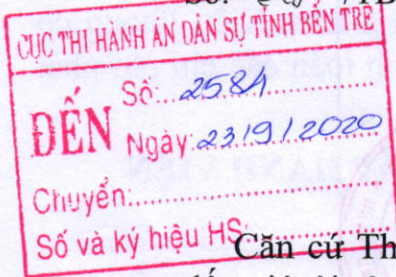 Số: /TB
CỤC THI HÀNH ÁN DÂN SỰ TỈNH BẾN TRE
ĐẾN
Số: 2584
Ngày: 23/9/2020
Chuyển:
Số và ký hiệu HS:
Căn cứ Th